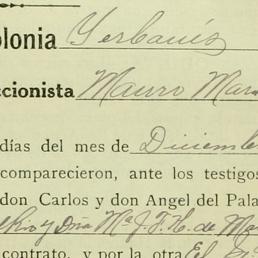 olonia Yerbanís
ccionista Mauro Mar
días del mes de Diciemb
comparecieron, ante los testigos
don Carlos y don Angel del Pala
y Dña Mª J. F. H. de Ma
contrato, y por la otra El